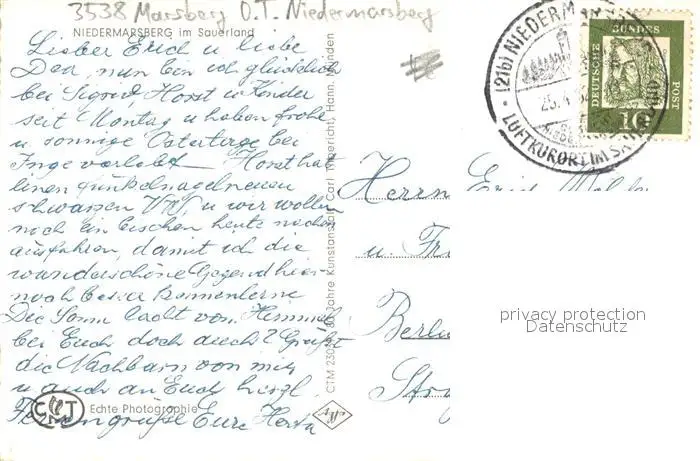 3538 Marsberg O.T. Niedermarsberg
NIEDERMARSBERG im Sauerland
Lieber Erich u liebe
Dea, nun bin ich glücklich
bei Sigrid, Horst u Kinder
seit Montag u haben frohe
u sonnige Ostertage bei
Inge verlebt. Horst hat
einen funkelnagelneuen
schwarzen VW, u wir wollen
noch ein bischen heute nachm
ausfahren, damit ich die
wunderschöne Gegend hier
noch besser kennenlerne
Die Sonne lacht vom Himmel
bei Euch doch auch? Grüßt
die Nachbarn von mir
u auch an Euch herzl.
Feriengrüße Eure Herta
Echte Photographie
CTM
Herrn Erich
u
Berlin
(21b) NIEDERMARSBERG
LUFTKURORT IM SAUERLAND
DEUTSCHE BUNDES POST
10
privacy protection
Datenschutz